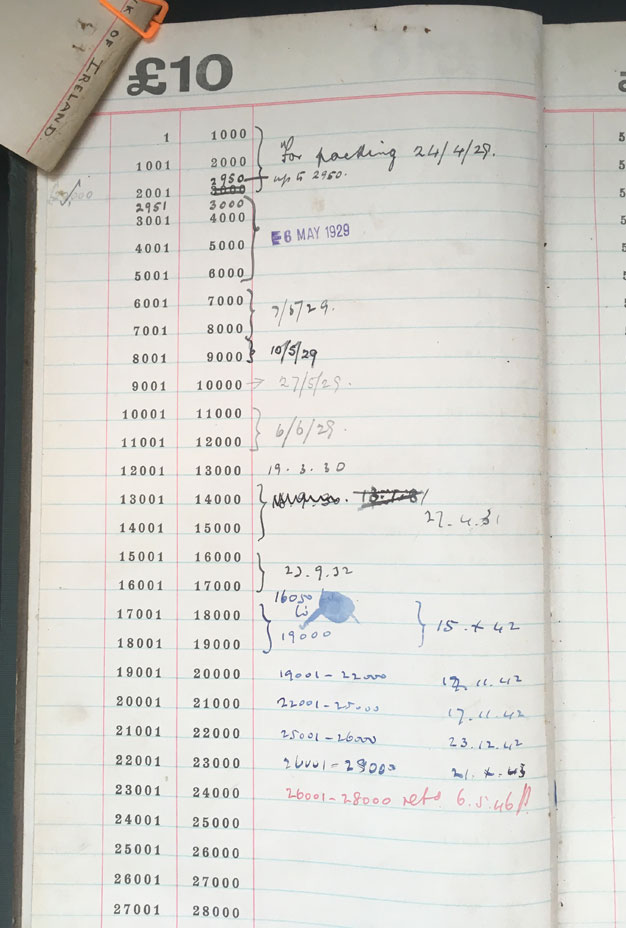 OF IRELAND
£10
1 1000
For packing 24/4/29.
1001 2000
2950 up to 2950.
2001 3000
2951 3000
3001 4000
6 MAY 1929
4001 5000
5001 6000
6001 7000
7/5/29.
7001 8000
8001 9000 10/5/29
9001 10000 → 27/5/29.
10001 11000
6/6/29.
11001 12000
12001 13000 19.3.30
13001 14000
27.4.31
14001 15000
15001 16000
23.9.32
16001 17000
16050
17001 18000
15.X 42
19000
18001 19000
19001 20000 19001-22000 12.11.42
20001 21000 22001-25000 17.11.42
21001 22000 25001-26000 23.12.42
22001 23000 26001-28000 21.X.43
23001 24000 26001-28000 retd 6.5.46
24001 25000
25001 26000
26001 27000
27001 28000